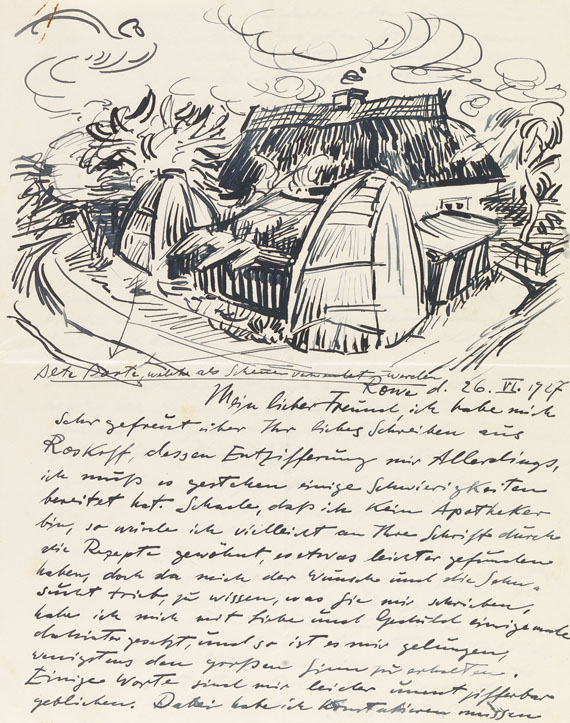 Alte Boote, welche als Scheunen verwendet werden
Rowe d. 26. VI. 1927
Mein lieber Freund, ich habe mich
sehr gefreut über Ihr liebes Schreiben aus
Roskoff, dessen Entzifferung mir Allerdings,
ich muß es gestehen einige Schwierigkeiten
bereitet hat. Schade, daß ich kein Apotheker
bin, so würde ich vielleicht an Ihre Schrift durch
die Rezepte gewöhnt, es etwas leichter gefunden
haben, doch da mich der Wunsch und die Sehn-
sucht trieb, zu wissen, was Sie mir schrieben,
habe ich mich mit Liebe und Geduld einigemale
dahinter gesetzt, und so ist es mir gelungen,
wenigstens den großen Sinn zu erhalten.
Einige Worte sind mir leider unentzifferbar
geblieben. Dabei habe ich konstatieren müssen